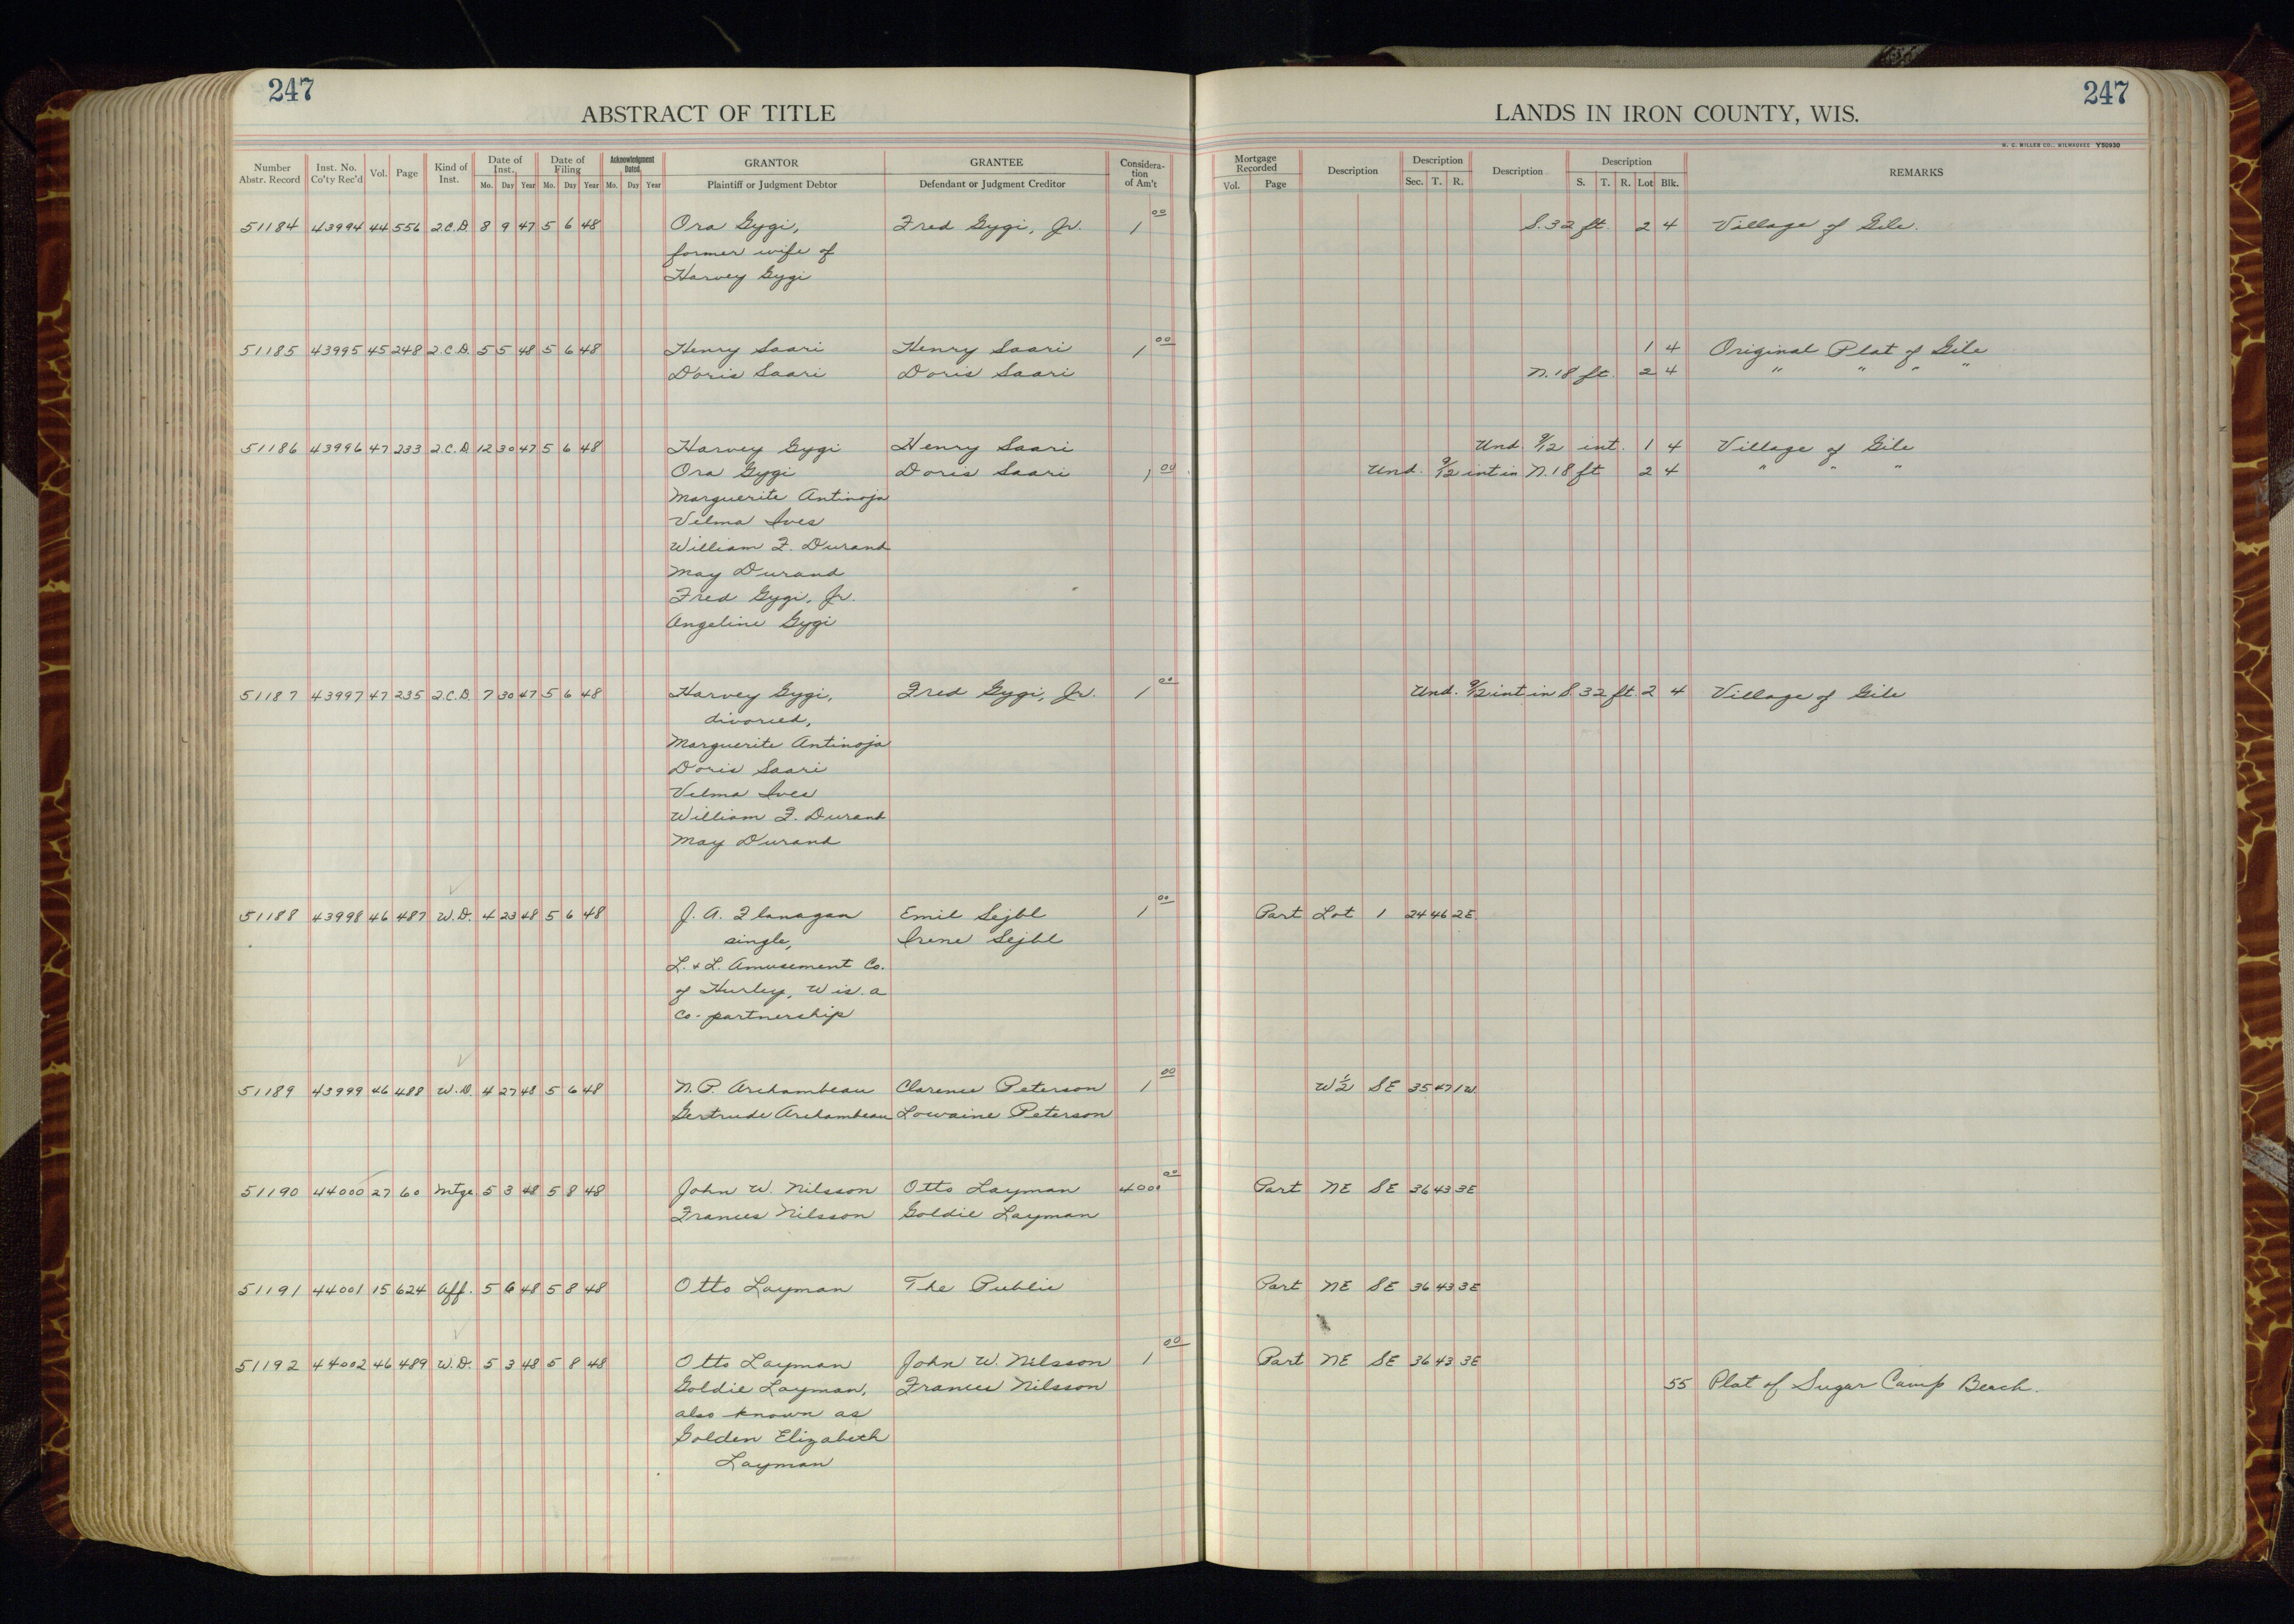 247
ABSTRACT OF TITLE
LANDS IN IRON COUNTY, WIS.
247
H. C. MILLER CO., MILWAUKEE Y50930
Number Abstr. Record | Inst. No. Co'ty Rec'd | Vol. | Page | Kind of Inst. | Date of Inst. Mo. Day Year | Date of Filing Mo. Day Year | Acknowledgment Dated Mo. Day Year | GRANTOR Plaintiff or Judgment Debtor | GRANTEE Defendant or Judgment Creditor | Considera-tion of Am't | Mortgage Recorded Vol. Page | Description | Description Sec. T. R. | Description | Description S. T. R. Lot Blk. | REMARKS
51184 43994 44 556 2.C.D. 8 9 47 5 6 48 Ora Gygi, Fred Gygi, Jr. 1 00 S. 32 ft. 2 4 Village of Gile.
former wife of
Harvey Gygi
51185 43995 45 248 2.C.D. 5 5 48 5 6 48 Henry Saari Henry Saari 1 00 1 4 Original Plat of Gile
Doris Saari Doris Saari N. 18 ft. 2 4 " " " "
51186 43996 47 233 2.C.D. 12 30 47 5 6 48 Harvey Gygi Henry Saari Und. 9/12 int. 1 4 Village of Gile
Ora Gygi Doris Saari 1 00 Und. 9/12 int in N. 18 ft 2 4 " " "
Marguerite Antinoja
Velma Ives
William F. Durand
May Durand
Fred Gygi, Jr.
Angeline Gygi
51187 43997 47 235 2.C.D. 7 30 47 5 6 48 Harvey Gygi, Fred Gygi, Jr. 1 00 Und. 9/12 int in S. 32 ft. 2 4 Village of Gile
divorced,
Marguerite Antinoja
Doris Saari
Velma Ives
William F. Durand
May Durand
51188 43998 46 487 W.D. 4 23 48 5 6 48 J. A. Flanagan Emil Sejbl 1 00 Part Lot 1 24 46 2E.
single, Irene Sejbl
L. & L. Amusement Co.
of Hurley, Wis. a
co-partnership
51189 43999 46 488 W.D. 4 27 48 5 6 48 N. P. Archambeau Clarence Peterson 1 00 W 1/2 SE 35 47 1W.
Gertrude Archambeau Lowaine Peterson
51190 44000 27 60 Mtge 5 3 48 5 8 48 John W. Nilsson Otto Layman 4000 00 Part NE SE 36 43 3E
Frances Nilsson Goldie Layman
51191 44001 15 624 Aff. 5 6 48 5 8 48 Otto Layman The Public Part NE SE 36 43 3E
51192 44002 46 489 W.D. 5 3 48 5 8 48 Otto Layman John W. Nilsson 1 00 Part NE SE 36 43 3E
Goldie Layman, Frances Nilsson 55 Plat of Sugar Camp Beach.
also known as
Golden Elizabeth
Layman